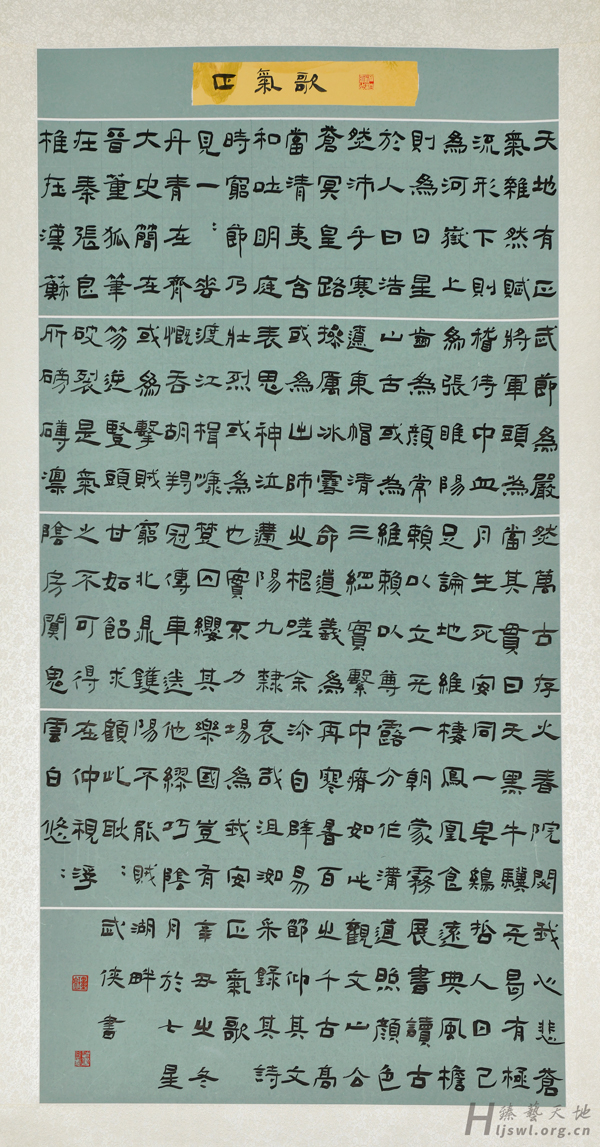 正氣歌
天地有正
氣雜然賦
流形下則
為河嶽上
則為日星
於人曰浩
然沛乎寒
蒼冥皇路
當清夷含
和吐明庭
時窮節乃
見一：垂
丹青在齊
大史簡在
晉董狐筆
在秦張良
椎在漢蘇
武節為嚴
將軍頭為
嵇侍中血
為張睢陽
齒為顏常
山舌或為
遼東帽清
操厲冰雪
或為出師
表鬼神泣
壯烈或為
渡江楫慷
慨吞胡羯
或為擊賊
笏逆豎頭
破裂是氣
所磅礴凜
然萬古存
當其貫日
月生死安
足論地維
賴以立天
維賴以尊
三綱實繫
命道義為
之根嗟余
遘陽九隸
也實不力
楚囚纓其
冠傳車送
窮北鼎鑊
甘如飴求
之不可得
陰房闃鬼
火春院閟
天黑牛驥
同一皂鷄
棲鳳凰食
一朝蒙霧
露分作溝
中瘠如此
再寒暑百
沴自辟易
哀哉沮洳
場為我安
樂國豈有
他繆巧陰
陽不能賊
顧此耿：
在仲視浮
雲白悠：
我心悲蒼
天曷有極
哲人日已
遠典風檐
展書讀古
道照顏色
觀文山公
之千古高
節仰其文
采錄其詩
正氣歌
辛丑之冬
月於七星
湖畔
武俠書
臻藝天地
Hljswl.org.cn